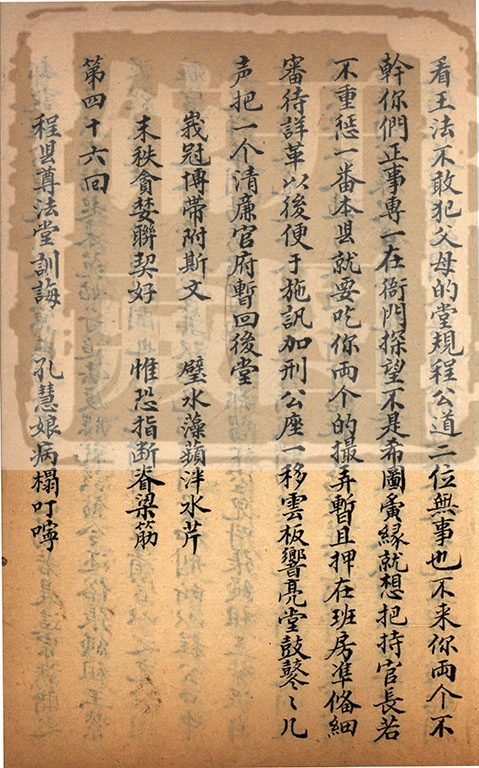 看王法不敢犯父母的堂規程公道二位無事也不来你両个不
幹你們正事専一在衙門探望不是希圖夤縁就想把持官長若
不重惩一番本县就要吃你両个的撮弄暫且押在班房准俻細
審待詳革以後便于施訊加刑公座一移雲板響亮堂鼓鼕〻几
声把一个清廉官府暫回後堂
峩冠博帯附斯文 璧水藻蘋泮水芹
末秩貪婪聨契好 惟恐指断脊梁筋
第四十六囘
程县尊法堂訓誨 孔慧娘病榻叮嚀